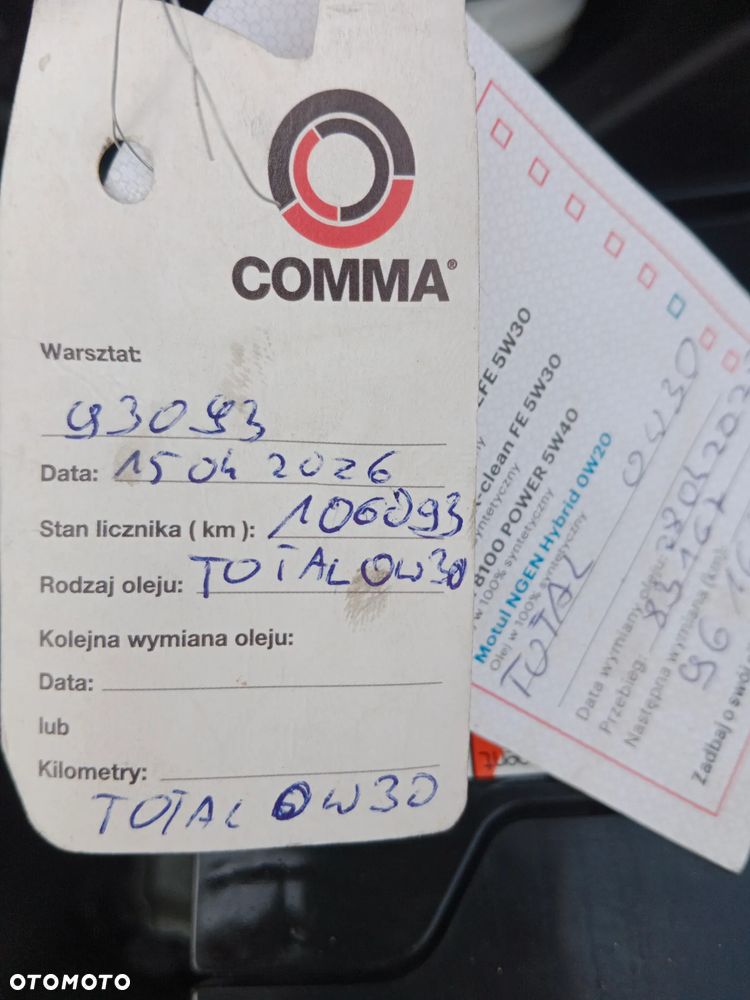 COMMA®
Warsztat:
93093
Data: 15 04 2026
Stan licznika ( km ): 106093
Rodzaj oleju: TOTAL 0W30
Kolejna wymiana oleju:
Data:
lub
Kilometry:
TOTAL 0W30
FE 5W30
-clean FE 5W30
8100 POWER 5W40
w 100% syntetyczny
Motul NGEN Hybrid 0W20
Olej w 100% syntetyczny
TOTAL 0W30
Data wymiany oleju: 28 04 202
Przebieg: 83167
Następna wymiana (km):
96 1
Zadbaj o swój
OTOMOTO